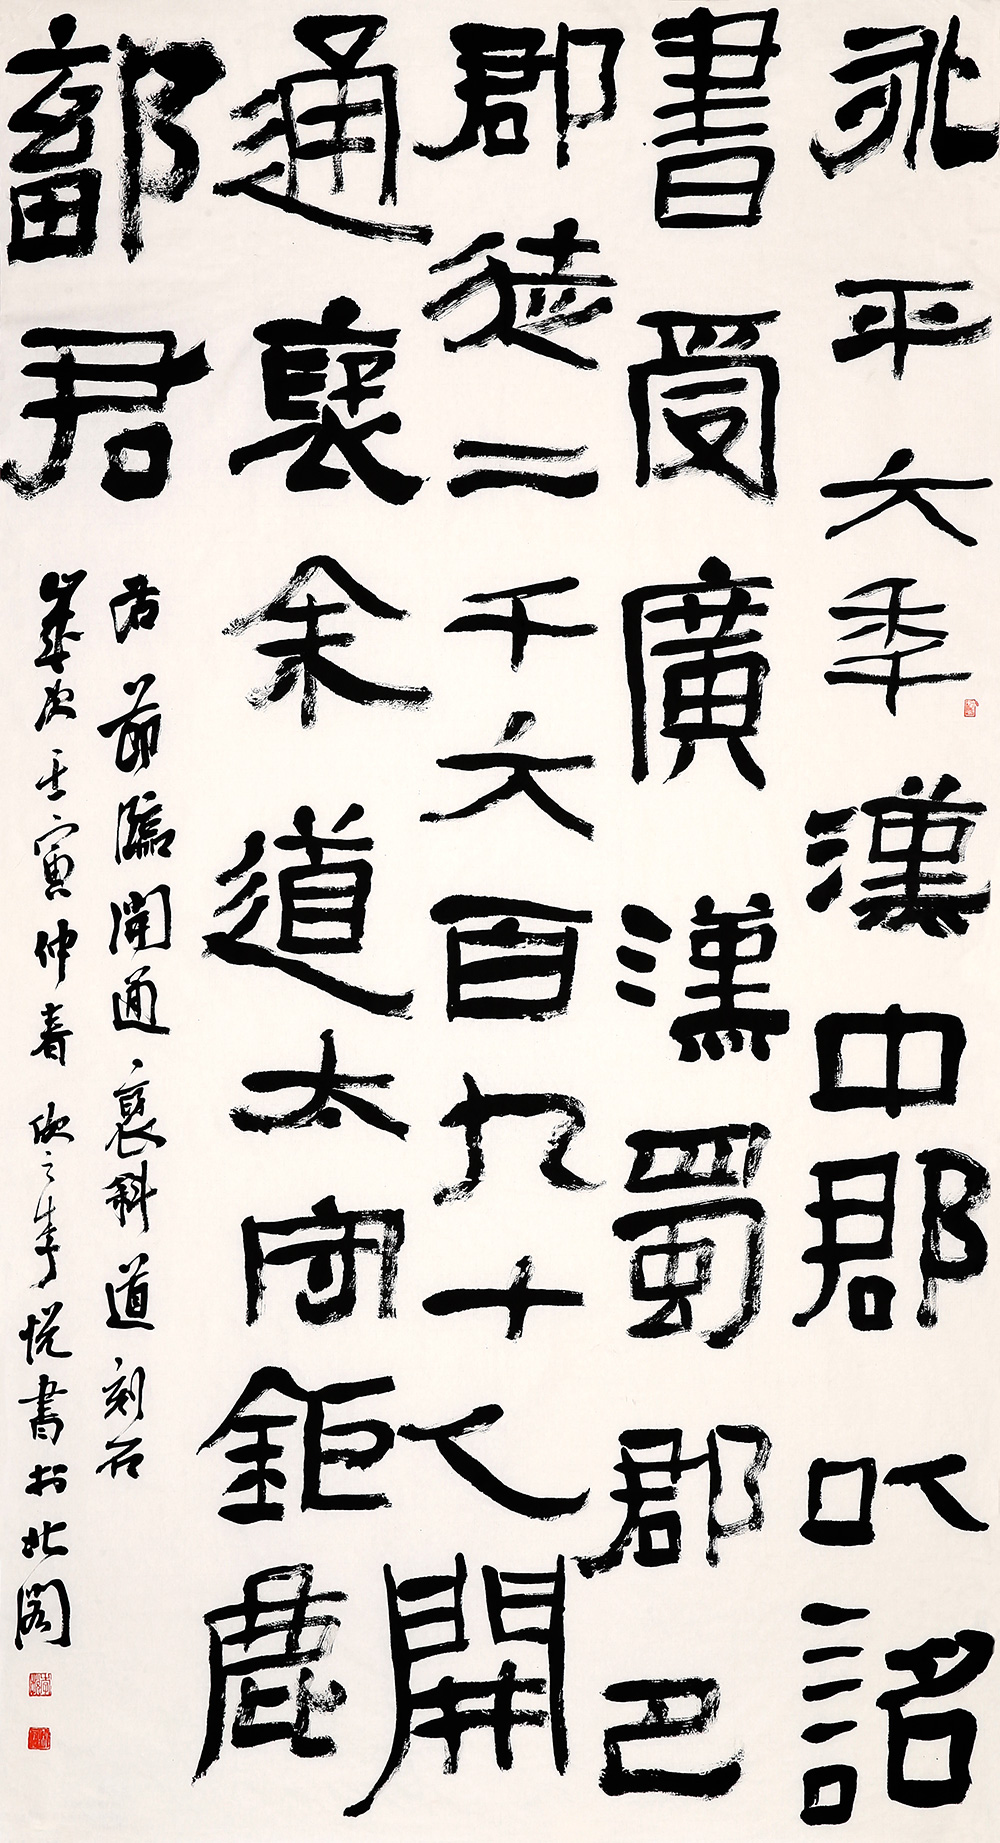 永平六年漢中郡以詔
書受廣漢蜀郡巴
郡徒二千六百九十人開
通褒余道太守鉅鹿
鄐君
右節臨開通褒斜道刻石
歲次壬寅仲春之李悅書於北閣